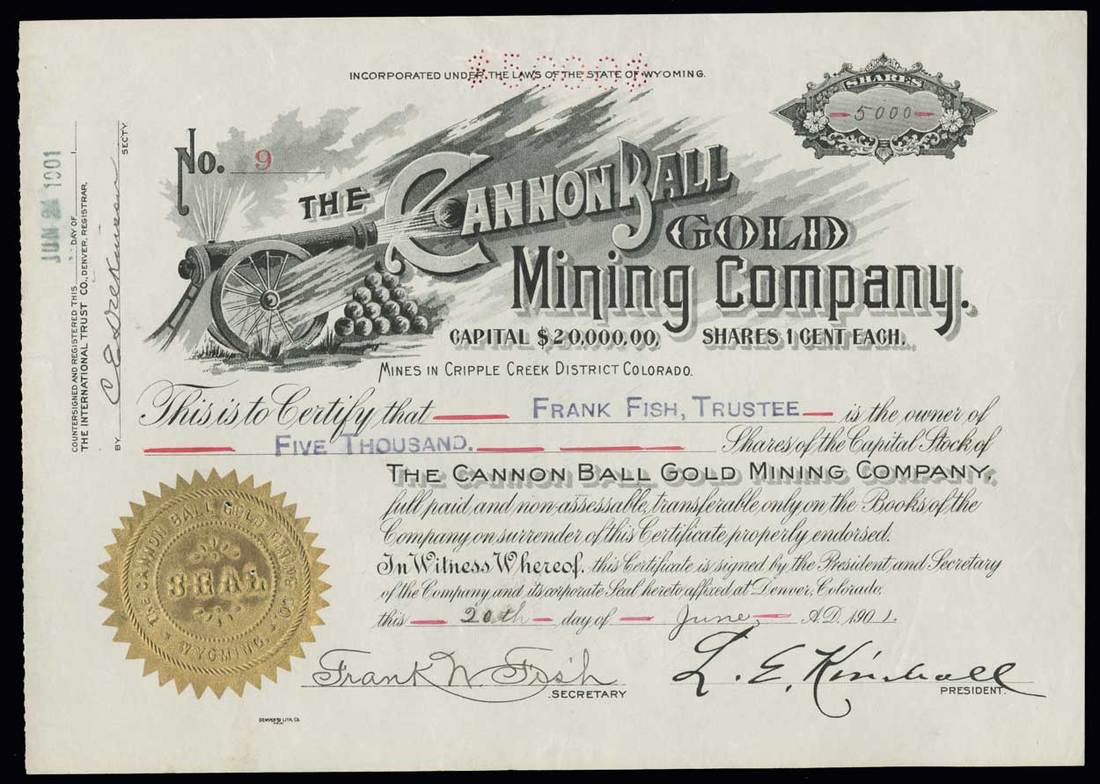 $5000$
INCORPORATED UNDER THE LAWS OF THE STATE OF WYOMING.
SHARES
5000
No. 9
THE CANNON BALL
GOLD
Mining Company.
CAPITAL $20,000.00, SHARES 1 CENT EACH.
MINES IN CRIPPLE CREEK DISTRICT COLORADO.
This is to Certify that FRANK FISH, TRUSTEE is the owner of
FIVE THOUSAND. Shares of the Capital Stock of
THE CANNON BALL GOLD MINING COMPANY,
full paid and non-assessable, transferable only on the Books of the
Company on surrender of this Certificate properly endorsed.
In Witness Whereof, this Certificate is signed by the President and Secretary
of the Company and its corporate Seal hereto affixed at Denver, Colorado,
this 20th day of June, A.D. 1901.
Frank N Fish
SECRETARY
L. E. Kimball
PRESIDENT.
COUNTERSIGNED AND REGISTERED THIS DAY OF 1
JUN 24 1901
THE INTERNATIONAL TRUST CO., DENVER, REGISTRAR,
BY SECTY.
THE CANNON BALL GOLD MINING CO.
SEAL
WYOMING.